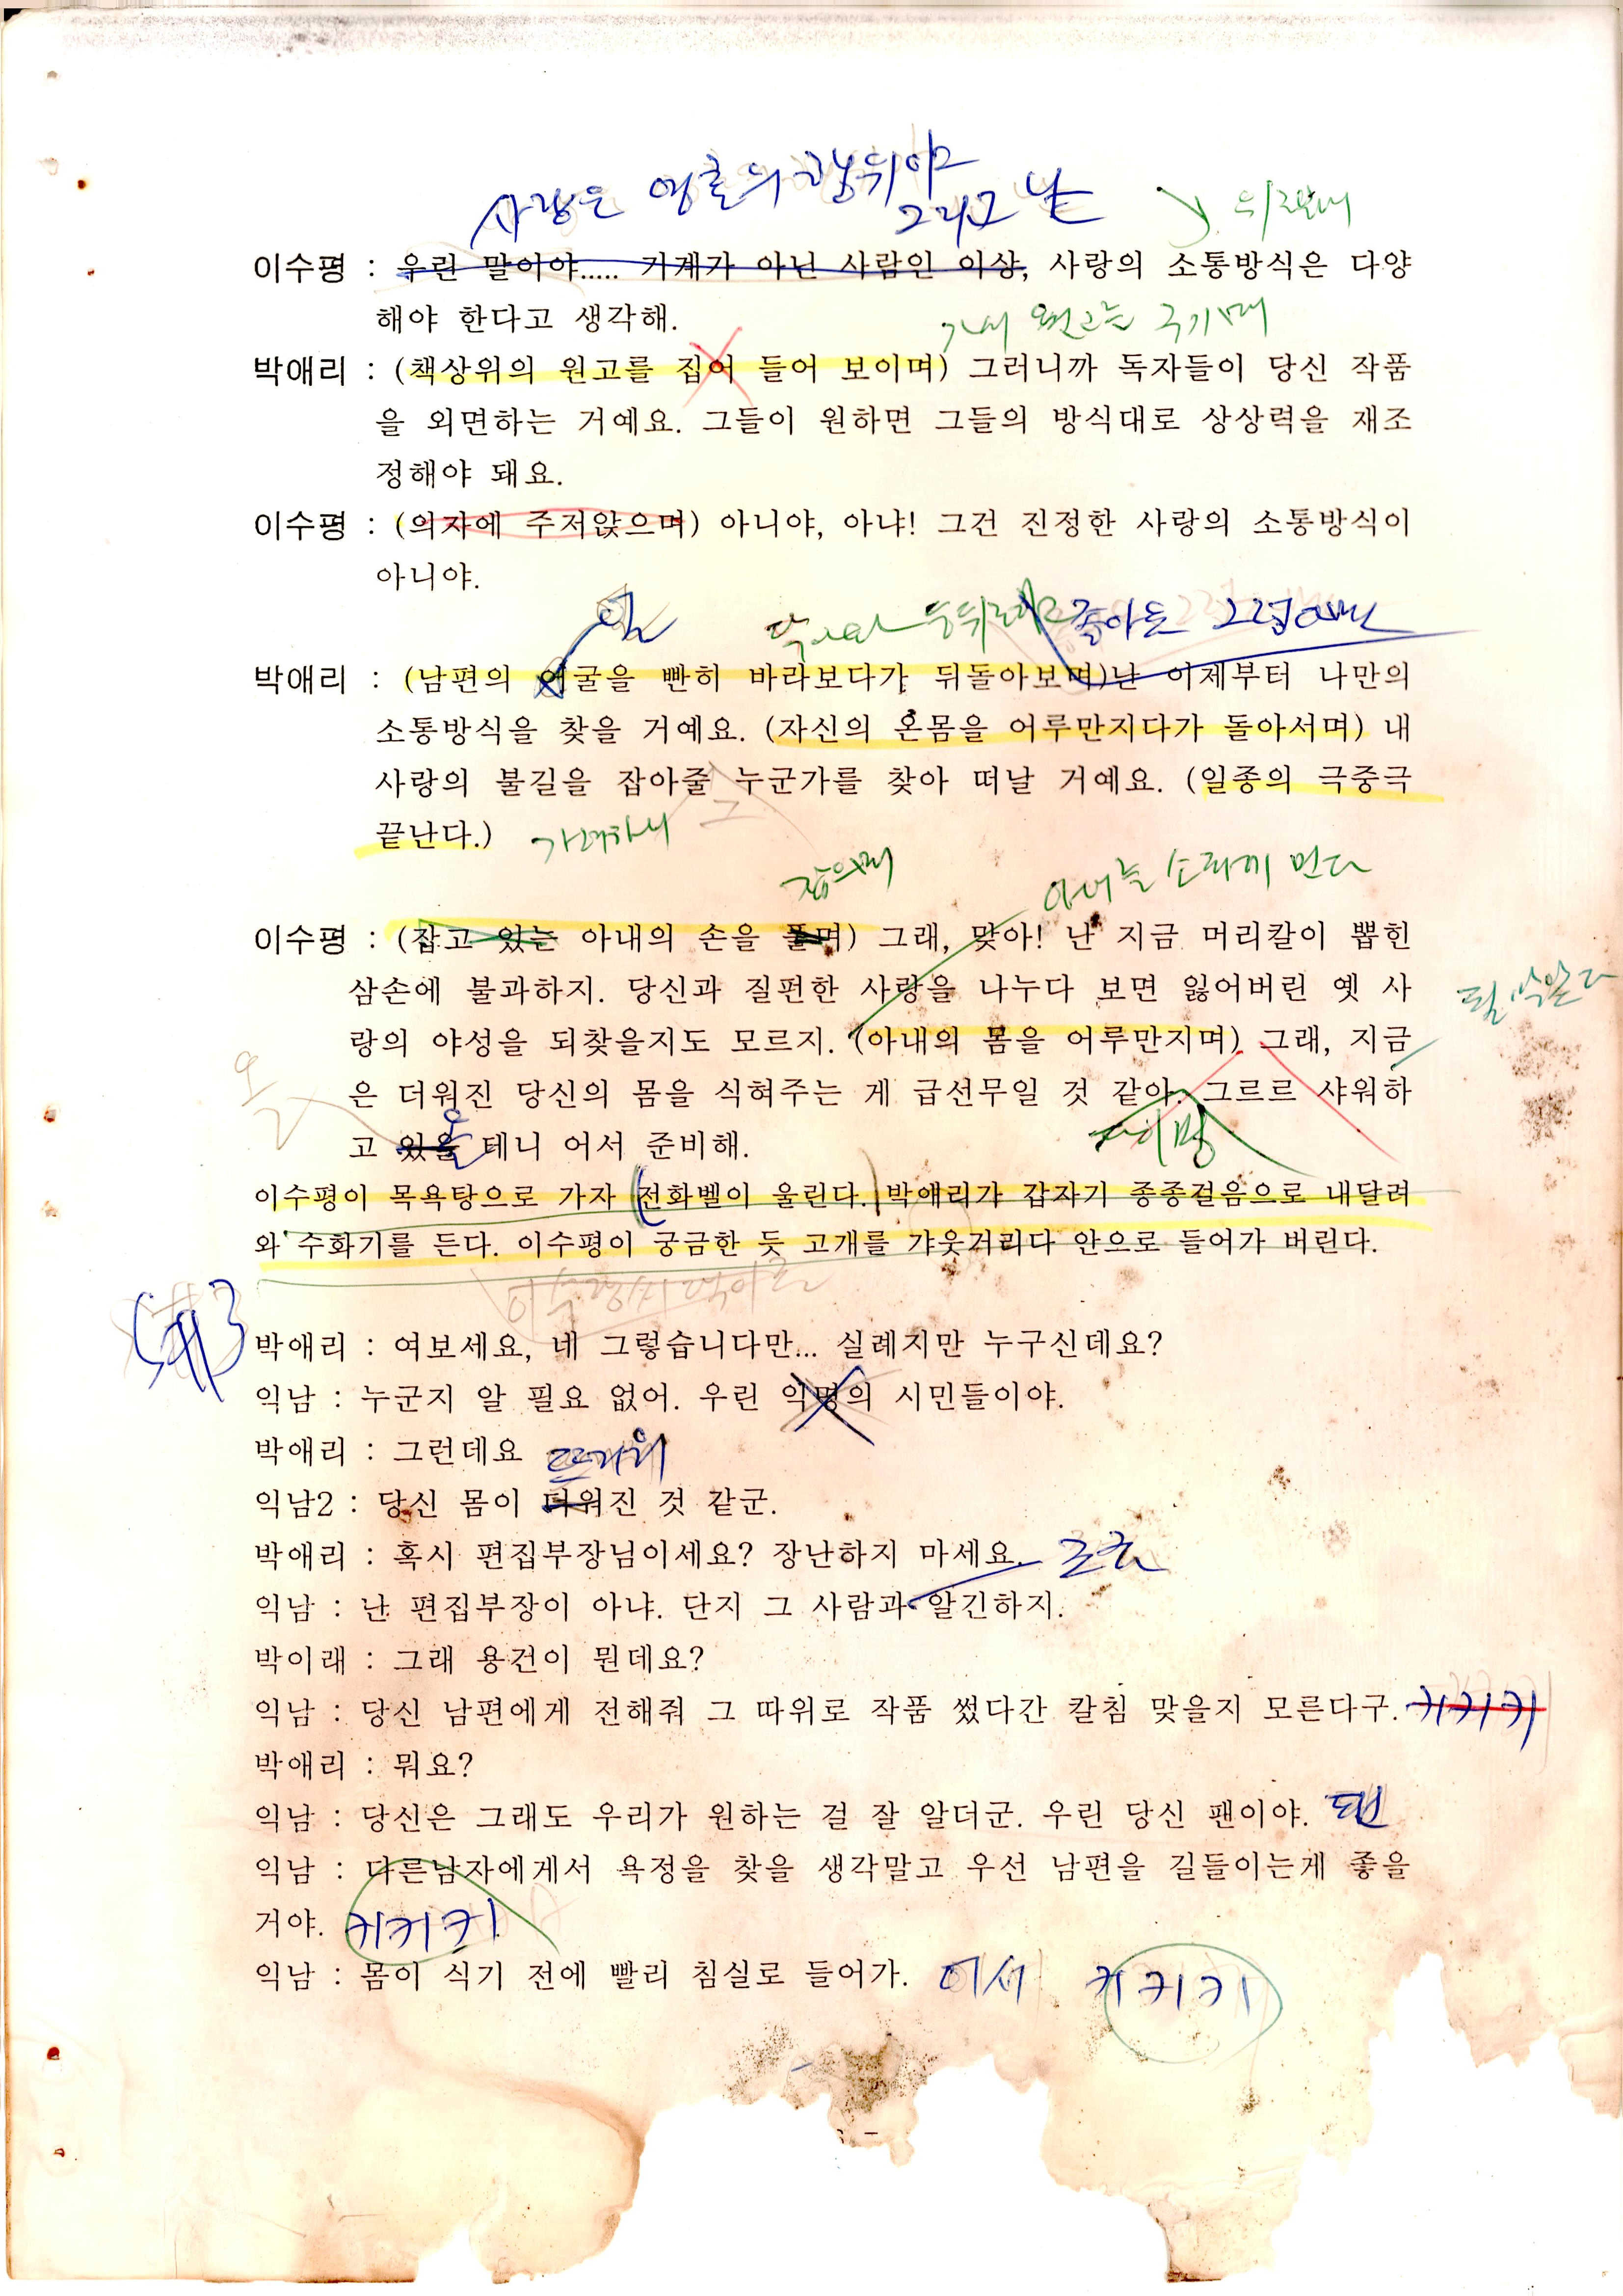 사랑은 영혼의 행위야
그리고 난
이수평 : 우린 말이야..... 기계가 아닌 사람인 이상, 사랑의 소통방식은 다양
해야 한다고 생각해.
박애리 : (책상위의 원고를 집어 들어 보이며) 그러니까 독자들이 당신 작품
을 외면하는 거예요. 그들이 원하면 그들의 방식대로 상상력을 재조
정해야 돼요.
이수평 : (의자에 주저앉으며) 아니야, 아냐! 그건 진정한 사랑의 소통방식이
아니야.
얼
좋아요 그럼
박애리 : (남편의 어굴을 빤히 바라보다가 뒤돌아보며)난 이제부터 나만의
소통방식을 찾을 거예요. (자신의 온몸을 어루만지다가 돌아서며) 내
사랑의 불길을 잡아줄 누군가를 찾아 떠날 거예요. (일종의 극중극
끝난다.)
그
잡으며
아내는 소파에
이수평 : (잡고 있는 아내의 손을 풀며) 그래, 맞아! 난 지금 머리칼이 뽑힌
삼손에 불과하지. 당신과 질펀한 사랑을 나누다 보면 잃어버린 옛 사
랑의 야성을 되찾을지도 모르지. (아내의 몸을 어루만지며) 그래, 지금
은 더워진 당신의 몸을 식혀주는 게 급선무일 것 같아. 그르르 샤워하
올
고 있을 테니 어서 준비해.
올
이수평이 목욕탕으로 가자 전화벨이 울린다. 박애리가 갑자기 종종걸음으로 내달려
와 수화기를 든다. 이수평이 궁금한 듯 고개를 갸웃거리다 안으로 들어가 버린다.
박애리 : 여보세요, 네 그렇습니다만... 실례지만 누구신데요?
익남 : 누군지 알 필요 없어. 우린 익명의 시민들이야.
박애리 : 그런데요
뜨거워
익남2 : 당신 몸이 더워진 것 같군.
박애리 : 혹시 편집부장님이세요? 장난하지 마세요.
조금
익남 : 난 편집부장이 아냐. 단지 그 사람과 알긴하지.
박이래 : 그래 용건이 뭔데요?
익남 : 당신 남편에게 전해줘 그 따위로 작품 썼다간 칼침 맞을지 모른다구. 키키키
박애리 : 뭐요?
익남 : 당신은 그래도 우리가 원하는 걸 잘 알더군. 우린 당신 팬이야. 팬
익남 : 다른남자에게서 욕정을 찾을 생각말고 우선 남편을 길들이는게 좋을
거야. 키키키
익남 : 몸이 식기 전에 빨리 침실로 들어가. 어서 키키키